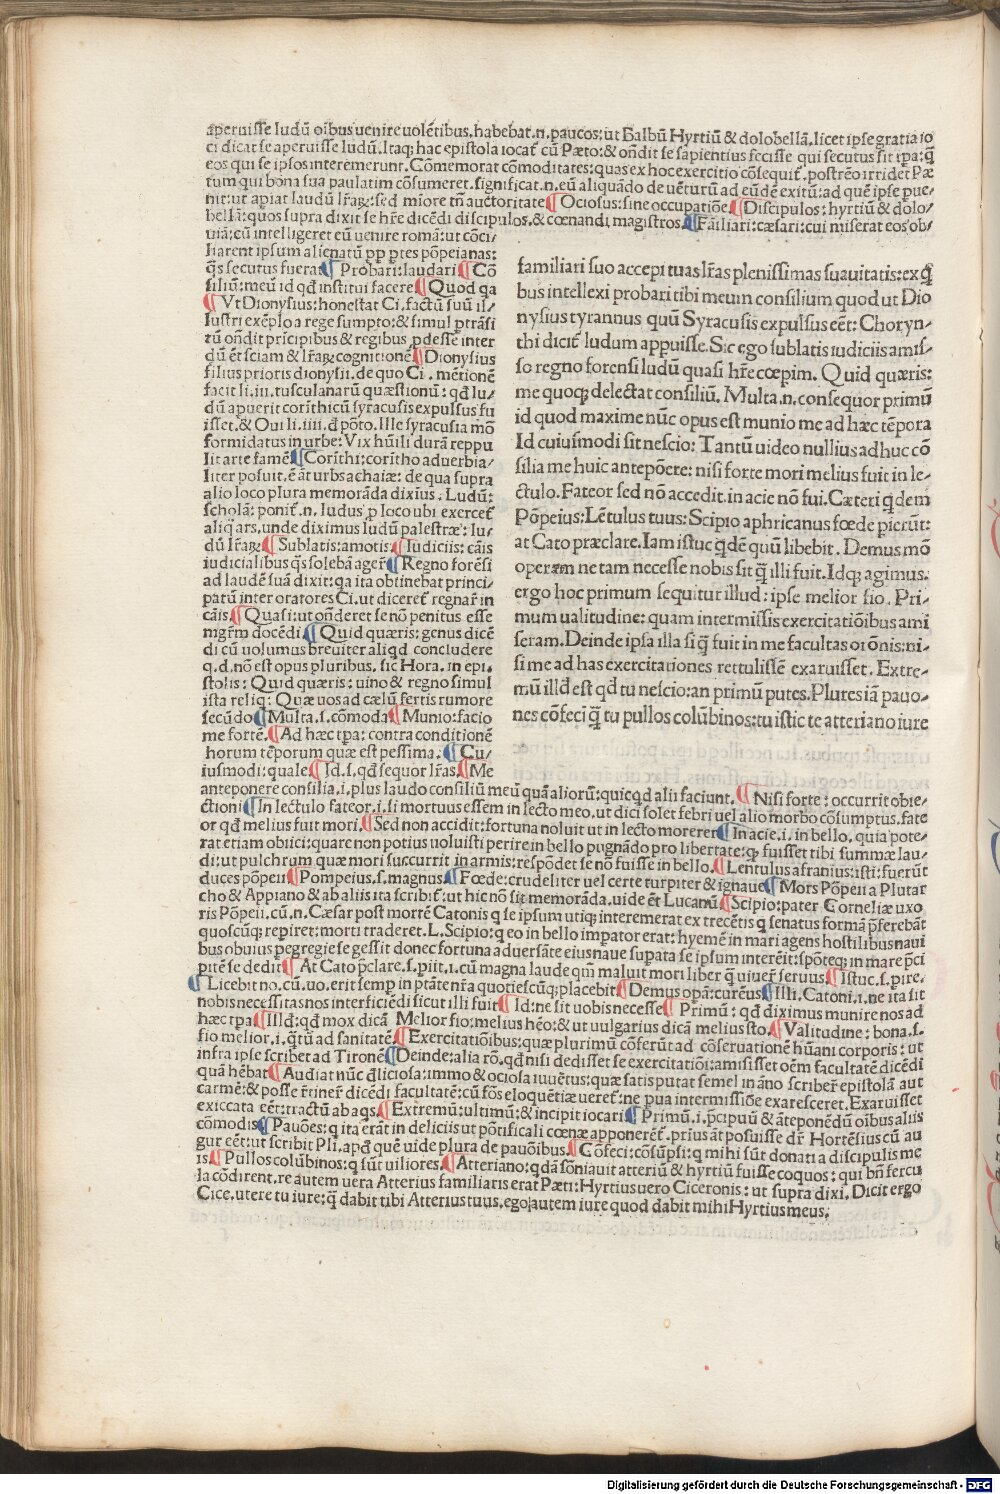 aperuisse ludū oībus uenire uolētibus. habebat .n. paucos: ut Balbū Hyrtiū & dolobellā. licet ipse gratia io
ci dicat se aperuisse ludū. Itaq; hac epistola iocat̄ cū Pæto: & ōndit se sapientius fecisse qui secutus sit ipa: q̄
eos qui se ipsos interemerunt. Cōmemorat cōmoditates: quas ex hoc exercitio cōsequit̄. postremo irridet Pæ
tum qui bona sua paulatim cōsumeret. significat .n. eū aliquādo deuēturū ad eūdē exitū: ad quē ipse pue-
nit: ut apiat ludū lr̄aꝝ: sed miore tn̄ auctoritate ¶ Ociosus: sine occupatiōe ¶ Discipulos: hyrtiū & dolo-
bellā: quos supra dixit se hr̄e dicēdi discipulos. & cœnandi magistros. ¶ Fāiliari: cæsari: cui miserat eos ob-
uiā: cū intelligeret eū uenire romā: ut cōci-
liarent ipsum alienatū pp ptes pōpeianas:
q̄s secutus fuerat ¶ Probari: laudari ¶ Cō
siliū: meū id qđ institui facere ¶ Quod qa
¶ Vt Dionysius: honestat Ci. factū suū il-
lustri exēplo a rege sumpto: & simul ptrāsi
tū ōndit prīcipibus & regibus pdesse inter
dū ēt sciam & lr̄aꝝ cognitionē ¶ Dionysius
filius prioris dionysii. de quo Ci. mētionē
facit li. iii. tusculanarū quæstionū: qđ lu-
dū apuerit corīthicū syracusis expulsus fu
isset. & Oui li. iiii. đ pōto. Ille syracusia mō
formidatus in urbe: Vix hūili durā reppu
lit arte famē ¶ Corīthi: corītho aduerbia-
liter posuit. ē āt urbs achaiæ: de qua supra
alio loco plura memorāda diximus. Ludū:
scholā: ponit̄ .n. ludus p loco ubi exercet̄
aliq̄ ars. unde diximus ludū palestræ: lu-
dū lr̄aꝝ ¶ Sublatis: amotis ¶ Iudiciis: cāis
iudicialibus q̄s solebā ager̄ ¶ Regno forēsi
ad laudē suā dixit: qa ita obtinebat princi-
patū inter oratores Ci. ut diceret̄ regnar̄ in
cāis ¶ Quasi: ut ōnderet se nō penitus esse
mgr̄m docēdi ¶ Quid quæris: genus dicē
di cū uolumus breuiter aliqđ concludere
q.d. nō est opus pluribus. sic Hora. in epi.
stolis: Quid quæris: uiuo & regno simul
ista reliq: Quæ uos ad cælū fertis rumore
secūdo ¶ Multa .s. cōmoda ¶ Munio: facio
me fortē. ¶ Ad hæc tpa: contra conditionē
horum tēporum quæ est pessima. ¶ Cu-
iusmodi: quale ¶ Id .s. qđ sequor lr̄as. ¶ Me
familiari suo accepi tuas lr̄as plenissimas suauitatis: ex q̄
bus intellexi probari tibi meum consilium quod ut Dio
nysius tyrannus quū Syracusis expulsus eēt: Choryn-
thi dicit̄ ludum appuisse. Sic ego sublatis iudiciis amis-
so regno forensi ludū quasi hr̄e cœpim. Quid quæris:
me quoq; delectat consiliū. Multa .n. consequor primū
id quod maxime nūc opus est munio me ad hæc tēpora
Id cuiusmodi sit nescio: Tantū uideo nullius adhuc cō
silia me huic antepōere: nisi forte mori melius fuit in le-
ctulo. Fateor sed nō accedit. in acie nō fui. Cæteri q̄dem
Pōpeius: Lētulus tuus: Scipio aphricanus fœde pierūt:
at Cato præclare. Iam istuc q̄dē quū libebit. Demus mō
operam ne tam necesse nobis sit q̄ illi fuit. Idq; agimus.
ergo hoc primum sequitur illud: ipse melior fio. Pri-
mum ualitudine: quam intermissis exercitatiōibus ami
seram. Deinde ipsa illa si q̄ fuit in me facultas orōnis: ni-
si me ad has exercitationes rettulissē exaruisset. Extre-
mū illđ est qđ tu nescio: an primū putes. Plures iā pauo-
nes cōfeci q̄ tu pullos colūbinos: tu istic te atteriano iure
anteponere consilia. i. plus laudo consiliū meū quā aliorū: quicqđ alii faciunt. ¶ Nisi forte: occurrit obie-
ctioni ¶ In lectulo fateor. i. si mortuus essem in lecto meo. ut dici solet febri uel alio morbo cōsumptus. fate
or qđ melius fuit mori. ¶ Sed non accidit: fortuna noluit ut in lecto morerer ¶ In acie .i. in bello. quia pote-
rat etiam obiici: quare non potius uoluisti perire in bello pugnādo pro libertate: q; fuisset tibi summæ lau-
di: ut pulchrum quæ mori succurrit in armis: respōdet se nō fuisse in bello. ¶ Lentulus afranius: isti: fuerūt
duces pōpeii ¶ Pompeius .s. magnus. ¶ Fœde: crudeliter uel certe turpiter & ignaue ¶ Mors Pōpeii a Plutar
cho & Appiano & ab aliis ita scribit̄: ut hic nō sit memorāda. uide ēt Lucanū ¶ Scipio: pater Corneliæ uxo
ris Pōpeii. cū .n. Cæsar post mortē Catonis q se ipsum utiq; interemerat ex trecētis q senatus formā p̄ferebāt
quoscūq; repiret: morti traderet. L. Scipio: q eo in bello impator erat: hyemē in mari agens hostilibus naui
bus obuius pegregie se gessit donec fortuna aduersāte eius naue supata se ipsum interēit: spōteq; in mare p̄ci
pitē se dedit ¶ At Cato p̄clare .s. piit. i. cū magna laude qm̄ maluit mori liber q̄ uiuer̄ seruus ¶ Istuc .s. pire.
¶ Licebit no. cū. uo. erit semp in ptāte nr̄a quotiescūq; placebit ¶ Demus opā: curēus ¶ Illi. Catoni. i. ne ita sit
nobis necessitas nos interficiēdi sicut illi fuit ¶ Id: ne sit uobis necesse ¶ Primū: qđ diximus munire nos ad
hæc tpa ¶ Illđ: qđ mox dicā Melior fio: melius hēo: & ut uulgarius dicā melius sto. ¶ Valitudine: bona .s.
fio melior. i. q̄tū ad sanitatē ¶ Exercitatiōibus: quæ plurimū cōferūt ad cōseruationē hūani corporis: ut
infra ipse scribet ad Tironē ¶ Deinde: alia rō. qđ nisi dedisset se exercitatiōi: amisisset oēm facultatē dicēdi
quā hēbat ¶ Audiat nūc đliciosa: immo & ociosa iuuētus: quæ satis putat semel in āno scriber̄ epistolā aut
carmē: & posse r̄tiner̄ dicēdi facultatē: cū fōs eloquētiæ ueret̄: ne pua intermissiōe exaresceret. Exaruisset
exiccata eēt: tractū ab aqs. ¶ Extremū: ultimū: & incipit iocari ¶ Primū. i. p̄cipuū & āteponēdū oibus aliis
cōmodis ¶ Pauōes: q ita erāt in deliciis ut pōtificali cœnæ apponerēt̄. prius āt posuisse dr̄ Hortēsius cū au
gur eēt: ut scribit Pli. apđ quē uide plura de pauōibus. ¶ Cōfeci: cōsūpsi: q mihi sūt donati a discipulis me
is ¶ Pullos colūbinos: q sūt uiliores. ¶ Atteriano: qdā sōniauit atteriū & hyrtiū fuisse coquos: qui bn̄ fercu
la cōdirent. re autem uera Atterius familiaris erat Pæti: Hyrtius uero Ciceronis: ut supra dixi. Dicit ergo
Cice. utere tu iure: q̄ dabit tibi Atterius tuus. ego autem iure quod dabit mihi Hyrtius meus.
Digitalisierung gefördert durch die Deutsche Forschungsgemeinschaft - DFG